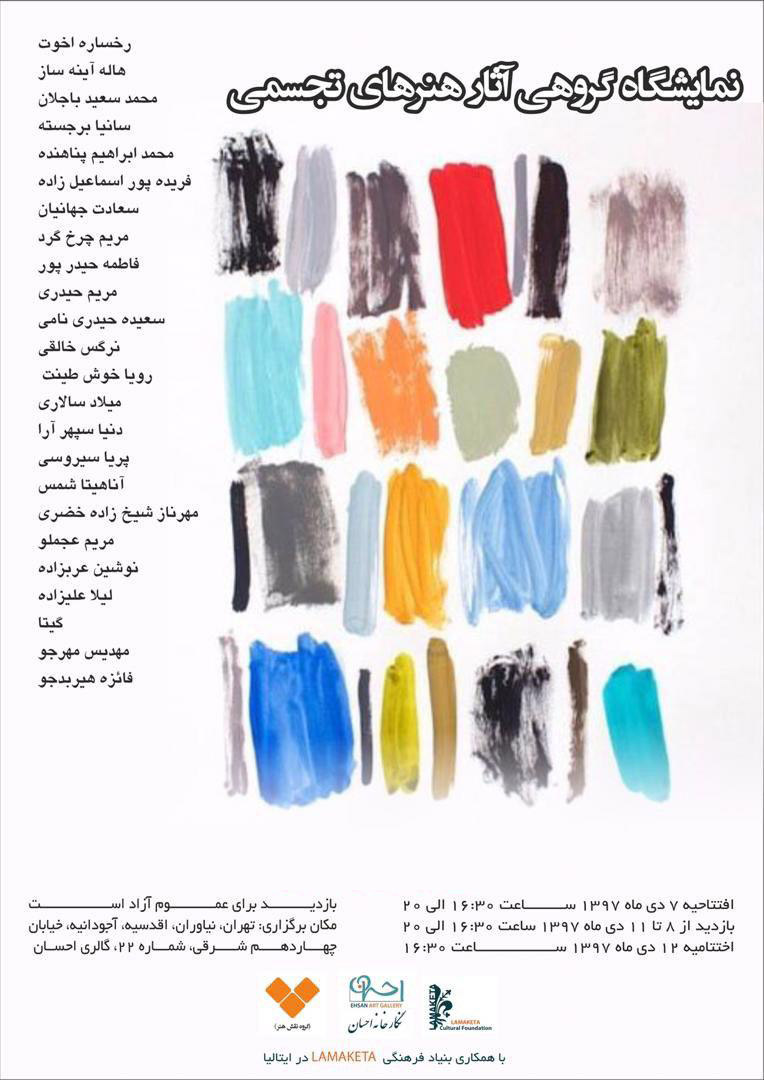 نمایشگاه گروهی آثار هنرهای تجسمی
رخساره اخوت
هاله آینه ساز
محمد سعید باجلان
سانیا برجسته
محمد ابراهیم پناهنده
فریده پور اسماعیل زاده
سعادت جهانیان
مریم چرخ گرد
فاطمه حیدر پور
مریم حیدری
سعیده حیدری نامی
نرگس خالقی
رویا خوش طینت
میلاد سالاری
دنیا سپهر آرا
پریا سیروسی
آناهیتا شمس
مهرناز شیخ زاده خضری
مریم عجملو
نوشین عربزاده
لیلا علیزاده
گیتا
مهدیس مهرجو
فائزه هیربدجو
افتتاحیه ۷ دی ماه ۱۳۹۷ ســـاعت ۱۶:۳۰ الی ۲۰
بازدید از ۸ تا ۱۱ دی ماه ۱۳۹۷ ساعت ۱۶:۳۰ الی ۲۰
اختتامیه ۱۲ دی ماه ۱۳۹۷ ســـاعت ۱۶:۳۰
بازدیـــد برای عمـــوم آزاد اســـت
مکان برگزاری: تهران، نیاوران، اقدسیه، آجودانیه، خیابان
چهـاردهـم شـرقی، شمـاره ۲۲، گالری احسـان
(گروه نقش هنر)
احسان
EHSAN ART GALLERY
نگارخانه احسان
LAMAKETA
LAMAKETA
Cultural Foundation
با همکاری بنیاد فرهنگی LAMAKETA در ایتالیا